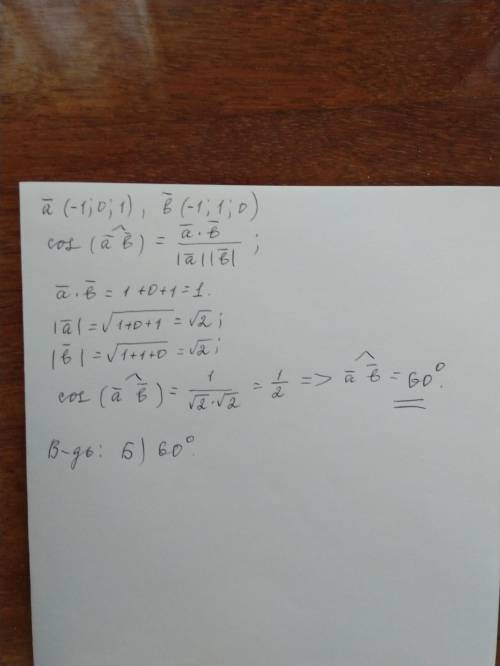 a̅ (-1; 0; 1), b̅ (-1; 1; 0)
cos (a̅ ^ b̅) = a̅ · b̅ / |a̅| |b̅| ;
a̅ · b̅ = 1 + 0 + 1 = 1.
|a̅| = √(1+0+1) = √2 ;
|b̅| = √(1+1+0) = √2 ;
cos (a̅ ^ b̅) = 1 / √2 · √2 = 1/2 => a̅ ^ b̅ = 60°.
В-дь: Б) 60°.